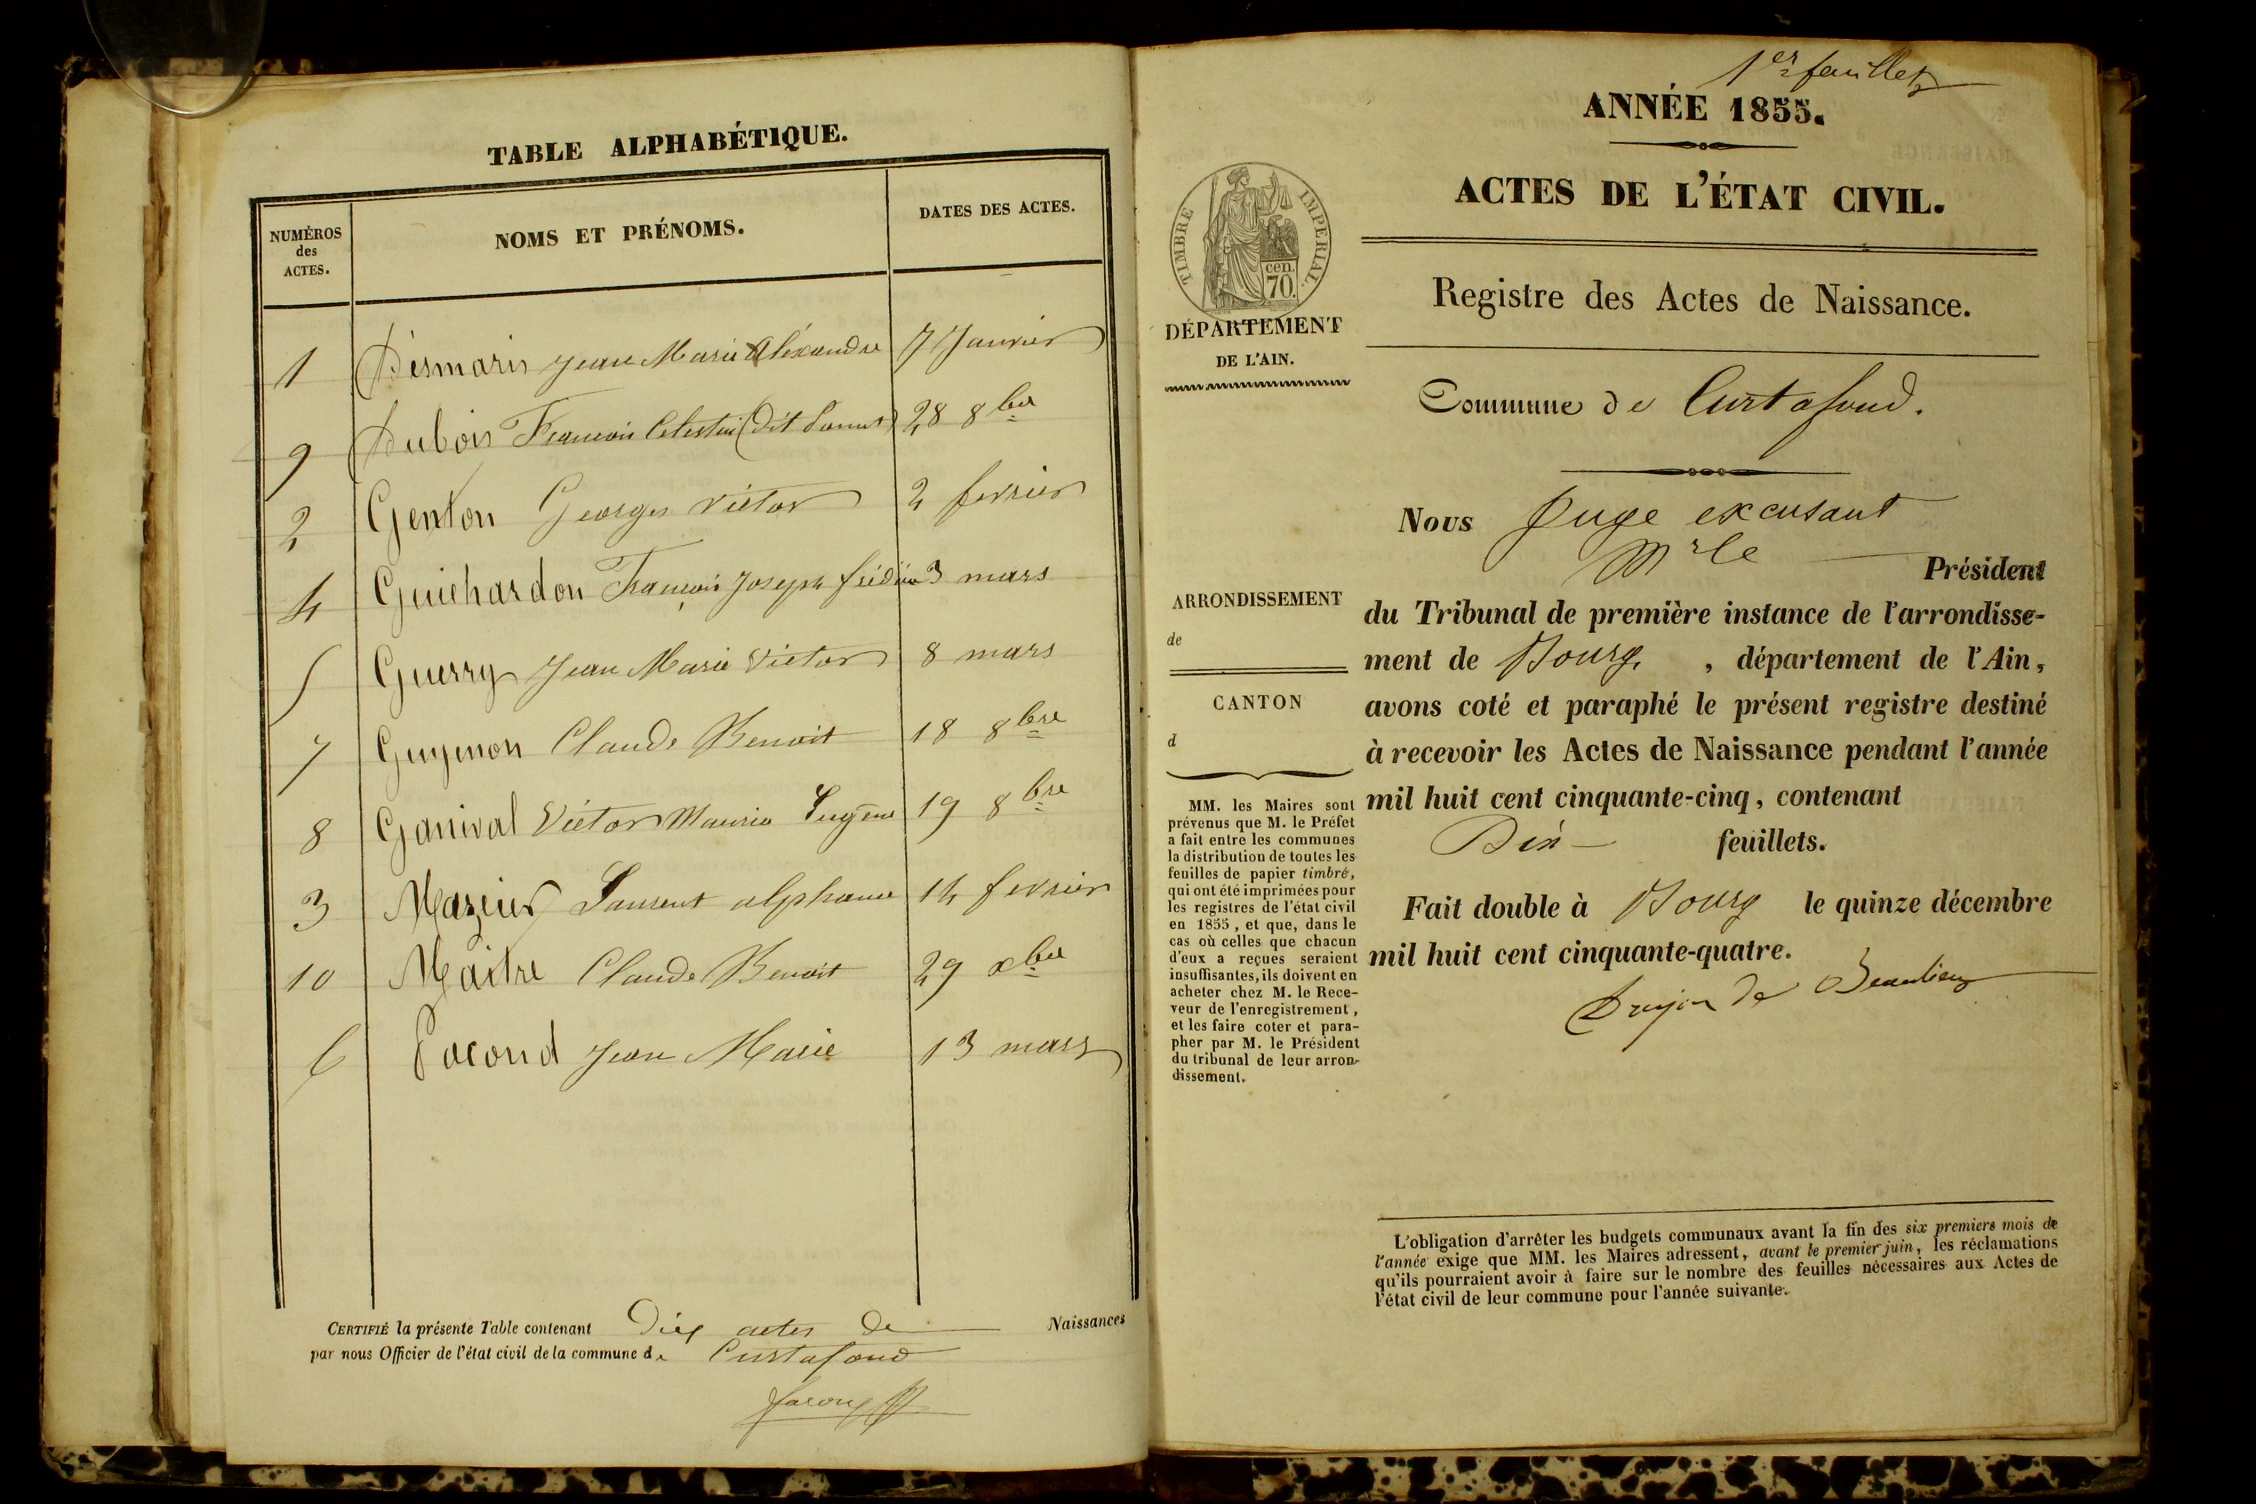 TABLE ALPHABÉTIQUE.
NUMÉROS des ACTES.
NOMS ET PRÉNOMS.
DATES DES ACTES.
1 Désmaris Jean Marie Aléxandre 7 Janvier
9 Dubois François Célestin (dit 28 8bre
2 Genton Georges Victor 2 fevrier
4 Guichardon François Joseph frédéric 3 mars
5 Guerry Jean Marie Victor 8 mars
7 Guyenon Claude Benoit 18 8bre
8 Ganival Victor Maurice Eugène 19 8bre
3 Mazuir Laurent alphonse 14 fevrier
10 Maitre Claude Benoit 29 xbre
6 Pacoud Jean Marie 13 mars
CERTIFIÉ la présente Table contenant Dix actes de Naissances
par nous Officier de l'état civil de la commune de Curtafond
1er feuillet
ANNÉE 1855.
ACTES DE L'ÉTAT CIVIL.
TIMBRE IMPERIAL.
cen.
70.
DÉPARTEMENT
DE L'AIN.
Registre des Actes de Naissance.
Commune de Curtafond.
Nous Juge excusant
Mr le Président
du Tribunal de première instance de l'arrondisse-
ment de Bourg, département de l'Ain,
avons coté et paraphé le présent registre destiné
à recevoir les Actes de Naissance pendant l'année
mil huit cent cinquante-cinq, contenant
Dix feuillets.
Fait double à Bourg le quinze décembre
mil huit cent cinquante-quatre.
Dujon de Beaulieu
ARRONDISSEMENT
de
CANTON
d
MM. les Maires sont
prévenus que M. le Préfet
a fait entre les communes
la distribution de toutes les
feuilles de papier timbré,
qui ont été imprimées pour
les registres de l'état civil
en 1855, et que, dans le
cas où celles que chacun
d'eux a reçues seraient
insuffisantes, ils doivent en
acheter chez M. le Rece-
veur de l'enregistrement,
et les faire coter et para-
pher par M. le Président
du tribunal de leur arron-
dissement.
L'obligation d'arrêter les budgets communaux avant la fin des six premiers mois de
l'année exige que MM. les Maires adressent, avant le premier juin, les réclamations
qu'ils pourraient avoir à faire sur le nombre des feuilles nécessaires aux Actes de
l'état civil de leur commune pour l'année suivante.